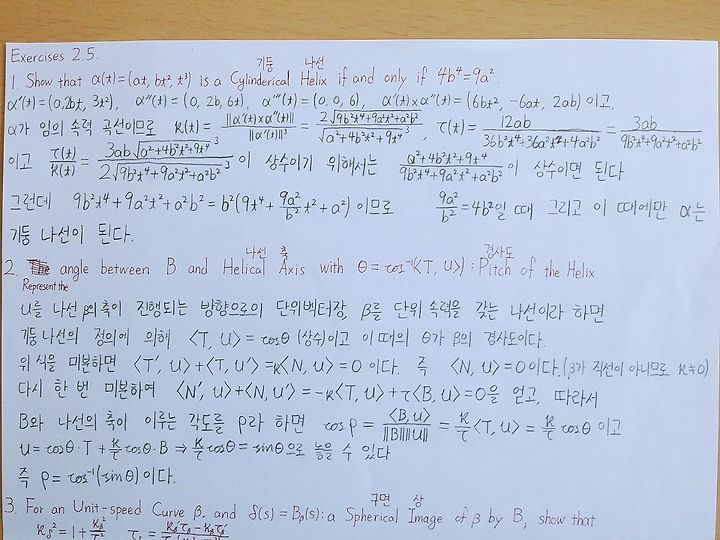 Exercises 2.5.
기둥 나선
1. Show that α(t)=(at, bt², t³) is a Cylinderical Helix if and only if 4b⁴=9a².
α'(t)=(a,2bt, 3t²), α''(t)=(0, 2b, 6t), α'''(t)=(0, 0, 6), α'(t)×α''(t)=(6bt², -6at, 2ab) 이고,
α가 임의 속력 곡선이므로 κ(t)=‖α'(t)×α''(t)‖/‖α'(t)‖³=2√(9b²t⁴+9a²t²+a²b²)/√(a²+4b²t²+9t⁴)³, τ(t)=12ab/(36b²t⁴+36a²t²+4a²b²)=3ab/(9b²t⁴+9a²t²+a²b²)
이고 τ(t)/κ(t)=3ab√(a²+4b²t²+9t⁴)³/2√(9b²t⁴+9a²t²+a²b²)³ 이 상수이기 위해서는 (a²+4b²t²+9t⁴)/(9b²t⁴+9a²t²+a²b²)이 상수이면 된다.
그런데 9b²t⁴+9a²t²+a²b²=b²(9t⁴+9a²/b² t²+a²) 이므로 9a²/b²=4b²일 때 그리고 이 때에만 α는
기둥 나선이 된다.
나선 축 경사도
2. angle between B and Helical Axis with θ=cos⁻¹(⟨T, U⟩):Pitch of the Helix
Represent the
U를 나선 β의 축이 진행되는 방향으로의 단위벡터장, β를 단위 속력을 갖는 나선이라 하면
기둥 나선의 정의에 의해 ⟨T, U⟩=cosθ (상수)이고 이 때의 θ가 β의 경사도이다.
위 식을 미분하면 ⟨T', U⟩+⟨T, U'⟩=κ⟨N, U⟩=0 이다. 즉 ⟨N, U⟩=0이다.(β가 직선이 아니므로 κ≠0)
다시 한 번 미분하여 ⟨N', U⟩+⟨N, U'⟩=-κ⟨T, U⟩+τ⟨B, U⟩=0을 얻고, 따라서
B와 나선의 축이 이루는 각도를 ρ라 하면 cosρ=⟨B, U⟩/‖B‖‖U‖=κ/τ⟨T, U⟩=κ/τ cosθ 이고
U=cosθ·T+κ/τ cosθ·B ⇒ κ/τ cosθ=sinθ으로 놓을 수 있다.
즉 ρ=cos⁻¹(sinθ)이다.
구면 상
3. For an Unit-speed Curve β, and δ(s)=Bᵦ(s):a Spherical Image of β by B, show that